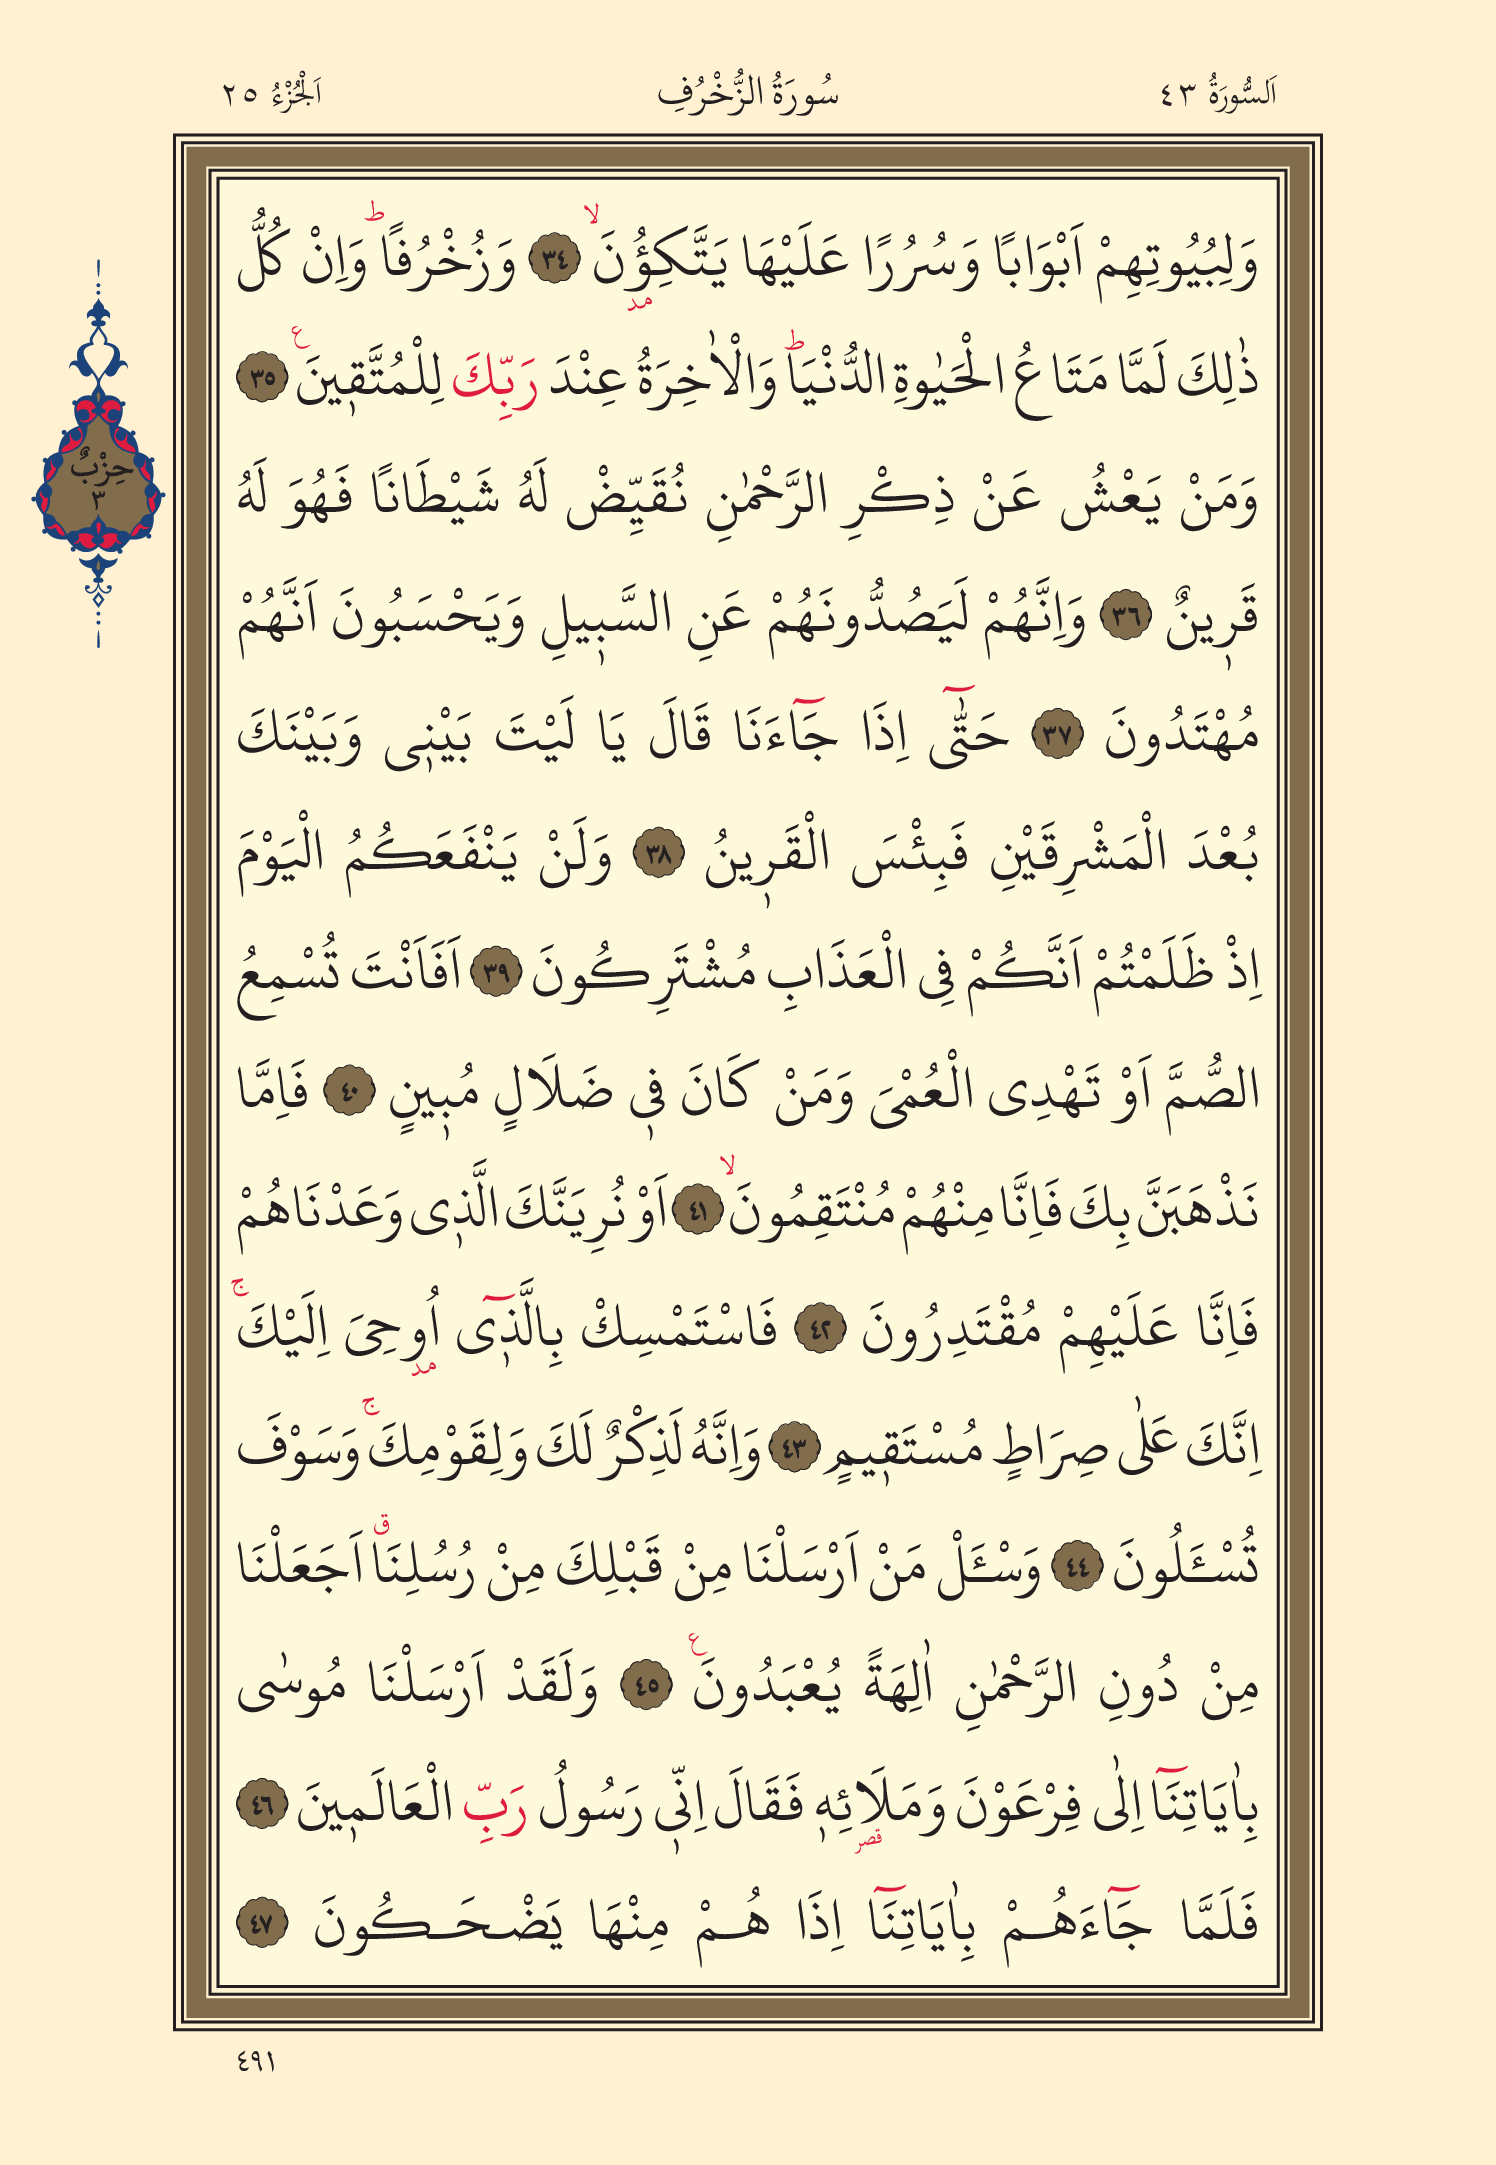 اَلسُّورَةُ ٤٣ سُورَةُ الزُّخْرُفِ اَلْجُزْءُ ٢٥
وَلِبُيُوتِهِمْ اَبْوَابًا وَسُرُرًا عَلَيْهَا يَتَّكِؤُ۫نَۙ ﴿٣٤﴾ وَزُخْرُفًاۜ وَاِنْ كُلُّ
ذٰلِكَ لَمَّا مَتَاعُ الْحَيٰوةِ الدُّنْيَاۜ وَالْاٰخِرَةُ عِنْدَ رَبِّكَ لِلْمُتَّق۪ينَ۟ ﴿٣٥﴾
حِزْبٌ
٣
وَمَنْ يَعْشُ عَنْ ذِكْرِ الرَّحْمٰنِ نُقَيِّضْ لَهُ شَيْطَانًا فَهُوَ لَهُ
قَر۪ينٌ ﴿٣٦﴾ وَاِنَّهُمْ لَيَصُدُّونَهُمْ عَنِ السَّب۪يلِ وَيَحْسَبُونَ اَنَّهُمْ
مُهْتَدُونَ ﴿٣٧﴾ حَتّٰٓى اِذَا جَٓاءَنَا قَالَ يَا لَيْتَ بَيْن۪ى وَبَيْنَكَ
بُعْدَ الْمَشْرِقَيْنِ فَبِئْسَ الْقَر۪ينُ ﴿٣٨﴾ وَلَنْ يَنْفَعَكُمُ الْيَوْمَ
اِذْ ظَلَمْتُمْ اَنَّكُمْ فِى الْعَذَابِ مُشْتَرِكُونَ ﴿٣٩﴾ اَفَاَنْتَ تُسْمِعُ
الصُّمَّ اَوْ تَهْدِى الْعُمْىَ وَمَنْ كَانَ ف۪ى ضَلَالٍ مُب۪ينٍ ﴿٤٠﴾ فَاِمَّا
نَذْهَبَنَّ بِكَ فَاِنَّا مِنْهُمْ مُنْتَقِمُونَۙ ﴿٤١﴾ اَوْ نُرِيَنَّكَ الَّذ۪ى وَعَدْنَاهُمْ
فَاِنَّا عَلَيْهِمْ مُقْتَدِرُونَ ﴿٤٢﴾ فَاسْتَمْسِكْ بِالَّذ۪ٓى اُو۫حِىَ اِلَيْكَۚ
اِنَّكَ عَلٰى صِرَاطٍ مُسْتَق۪يمٍ ﴿٤٣﴾ وَاِنَّهُ لَذِكْرٌ لَكَ وَلِقَوْمِكَۚ وَسَوْفَ
تُسْـَٔلُونَ ﴿٤٤﴾ وَسْـَٔلْ مَنْ اَرْسَلْنَا مِنْ قَبْلِكَ مِنْ رُسُلِنَاۗ اَجَعَلْنَا
مِنْ دُونِ الرَّحْمٰنِ اٰلِهَةً يُعْبَدُونَ۟ ﴿٤٥﴾ وَلَقَدْ اَرْسَلْنَا مُوسٰى
بِاٰيَاتِنَٓا اِلٰى فِرْعَوْنَ وَمَلَا۬ئِه۪ فَقَالَ اِنّ۪ى رَسُولُ رَبِّ الْعَالَم۪ينَ ﴿٤٦﴾
فَلَمَّا جَٓاءَهُمْ بِاٰيَاتِنَٓا اِذَا هُمْ مِنْهَا يَضْحَكُونَ ﴿٤٧﴾
٤٩١